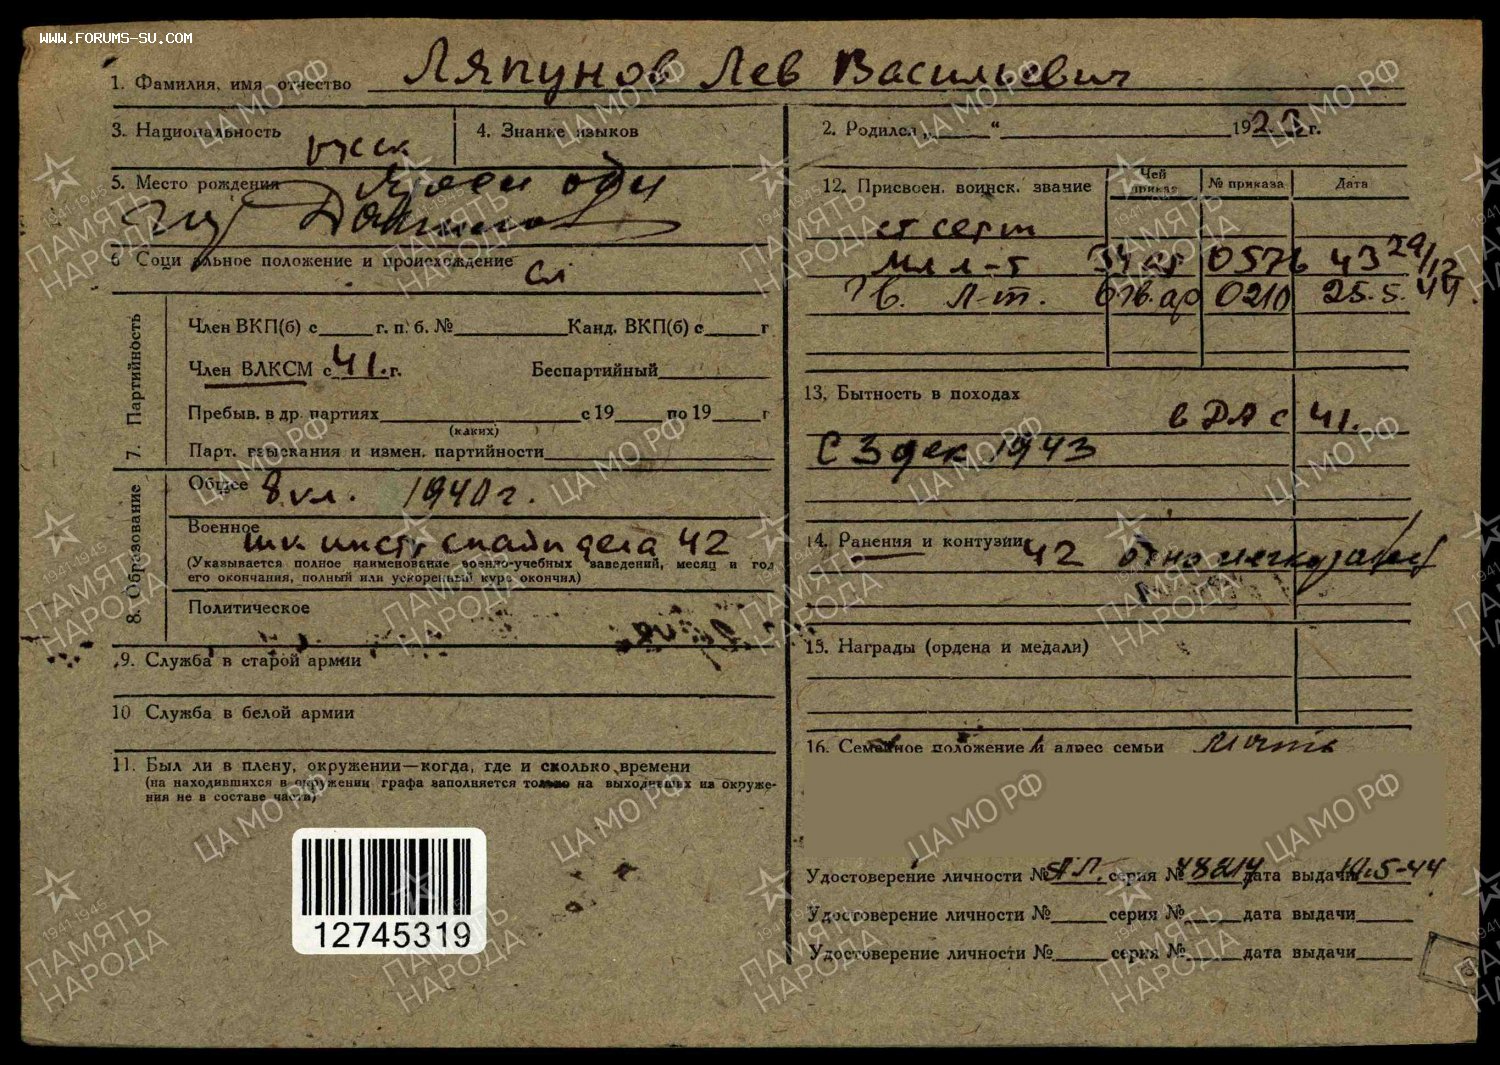 WWW.FORUMS-SU.COM
1. Фамилия, имя отчество Ляпунов Лев Васильевич
3. Национальность русск
4. Знание языков
5. Место рождения
6 Социальное положение и происхождение сл
7. Партийность
Член ВКП(б) с г. п. б. № Канд. ВКП(б) с г
Член ВЛКСМ с 41. г. Беспартийный
Пребыв. в др. партиях с 19 по 19 г
(каких)
Парт. взыскания и измен. партийности
8. Образование
Общее 8 кл. 1940 г.
Военное
шк инстр снайп дела 42
(Указывается полное наименование военно-учебных заведений, месяц и год
его окончания, полный или ускоренный курс окончил)
Политическое
9. Служба в старой армии
10 Служба в белой армии
11. Был ли в плену, окружении—когда, где и сколько времени
(на находившихся в окружении графа заполняется только на выходивших из окруже-
ния не в составе части)
12745319
2. Родился „ “ 1923 г.
12. Присвоен. воинск. звание Чей приказ № приказа Дата
ст серж
мл л-т 0576 43 29/12
Гв. л-т. 6 гв. ар 0210 25.5.44.
13. Бытность в походах
в ДА с 41.
С 3 дек 1943
14. Ранения и контузии 42
15. Награды (ордена и медали)
16. Семейное положение и адрес семьи мать
Удостоверение личности № ЯЛ. серия № дата выдачи 10.5-44
Удостоверение личности № серия № дата выдачи
Удостоверение личности № серия № дата выдачи
ЦА МО РФ
1941-1945
ПАМЯТЬ
НАРОДА